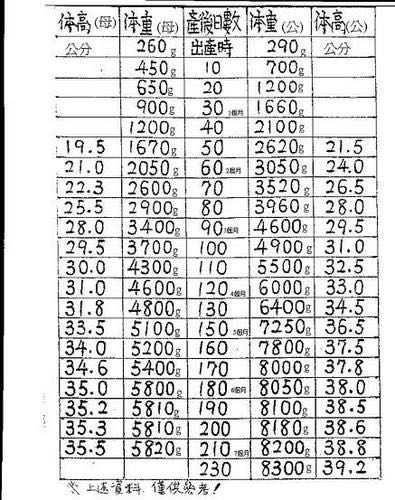 体高(母) 体重(母) 產後日數 体重(公) 体高(公)
公分 260g 出產時 290g 公分
450g 10 700g
650g 20 1200g
900g 30 1個月 1660g
1200g 40 2100g
19.5 1670g 50 2620g 21.5
21.0 2050g 60 2個月 3050g 24.0
22.3 2600g 70 3520g 26.5
25.5 2900g 80 3960g 28.0
28.0 3400g 90 3個月 4600g 29.5
29.5 3700g 100 4900g 31.0
30.0 4300g 110 5500g 32.5
31.0 4600g 120 4個月 6000g 33.0
31.8 4800g 130 6400g 34.5
33.5 5100g 150 5個月 7250g 36.5
34.0 5200g 160 7800g 37.5
34.6 5400g 170 8000g 37.8
35.0 5800g 180 6個月 8050g 38.0
35.2 5810g 190 8100g 38.5
35.3 5810g 200 8180g 38.6
35.5 5820g 210 7個月 8200g 38.8
230 8300g 39.2
※上述資料,僅供參考!